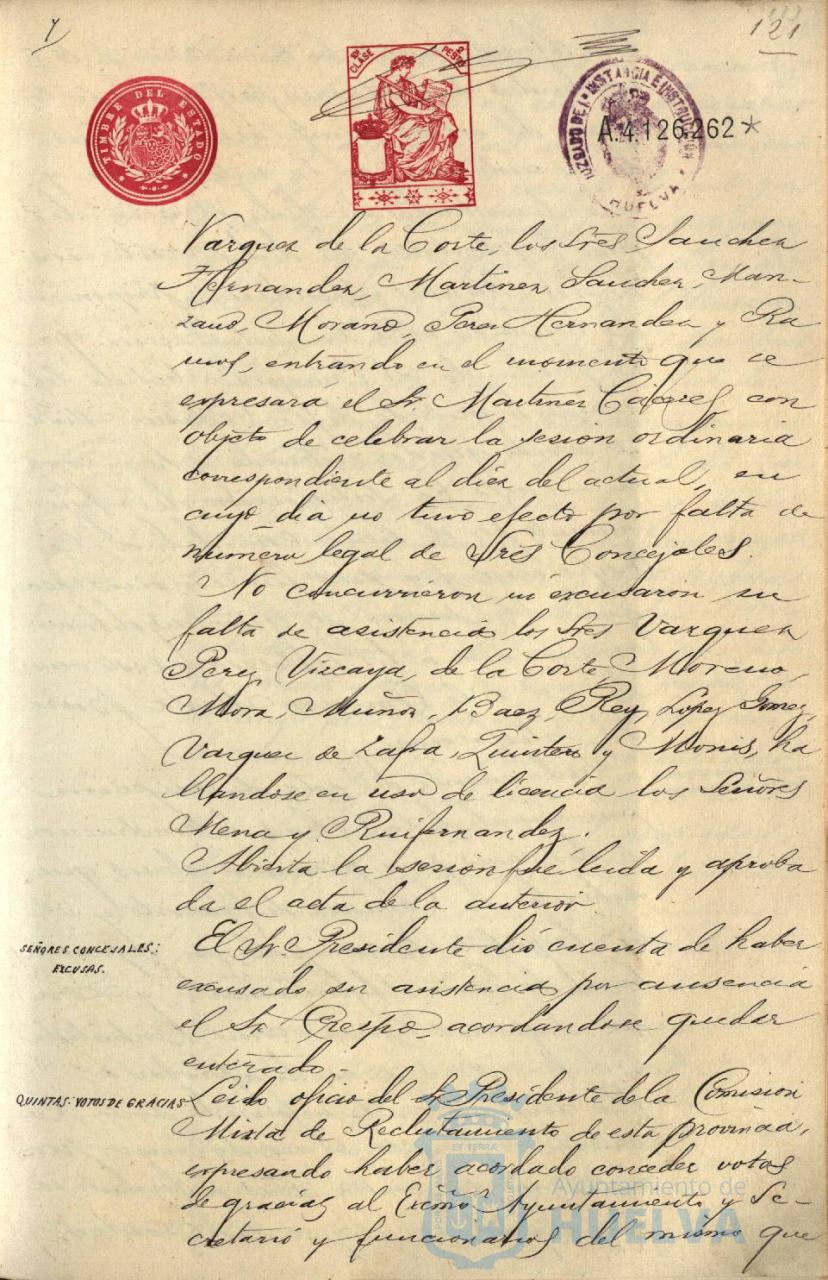 121
10ª CLASE 2 PESTS
TIMBRE DEL ESTADO
JUZGADO DE 1ª INSTANCIA E INSTRUCCION HUELVA
A.4.126.262*
Vazquez de la Corte, los Sres Sanchez
Hernandez, Martinez Sanchez, Man-
zano, Morano, Perez Hernandez y Ra
mos, entrando en el momento que se
expresará el Sr. Martinez Cáceres con
objeto de celebrar la sesion ordinaria
correspondiente al diez del actual, en
cuyo dia no tuvo efecto por falta de
numero legal de Sres Concejales.
No concurrieron ni excusaron su
falta de asistencia los Sres Vazquez
Perez, Vizcaya, de la Corte, Moreno,
Mora, Muñoz, Baez, Rey, López Gomez,
Vazquez de Zafra, Quintero y Monis, ha
llandose en uso de licencia los Señores
Mena y Ruifernandez.
Abierta la sesion fué leida y aproba
da el acta de la anterior
SEÑORES CONCEJALES:
EXCUSAS.
El Sr. Presidente dió cuenta de haber
excusado su asistencia por ausencia
el Sr Crespo, acordandose quedar
enterado.
QUINTAS: VOTOS DE GRACIAS
Leido oficio del Sr Presidente de la Comision
Mixta de Reclutamiento de esta provincia,
expresando haber acordado conceder votos
de gracias al Excmo. Ayuntamiento y Se-
cretario y funcionarios del mismo que
Ayuntamiento de
HUELVA